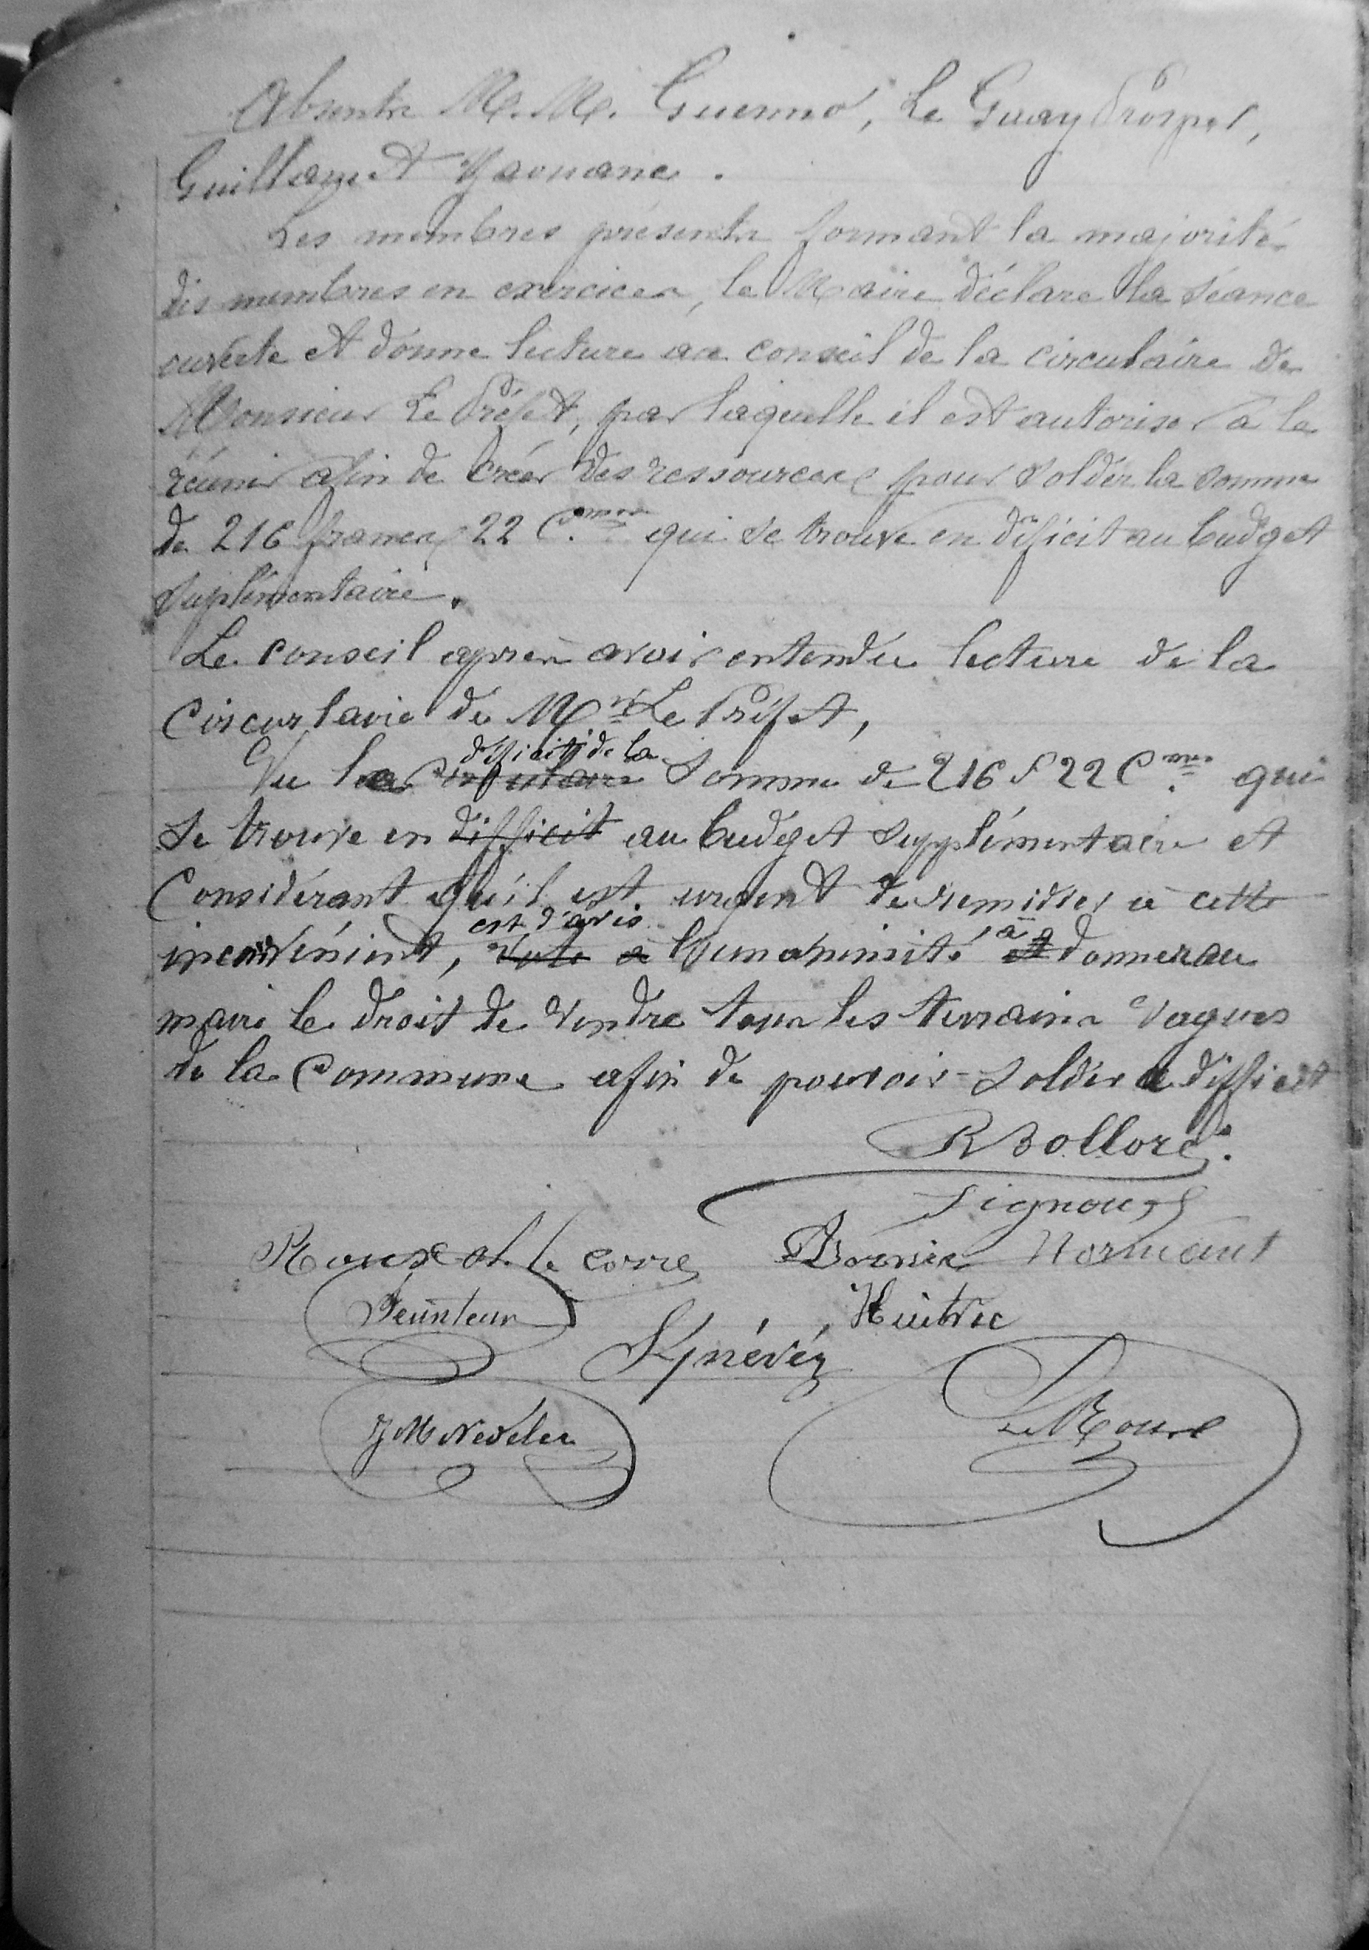 Absents M. M. Guenno, Le Guay Prosper,
Guillaume et Yaouanc.
Les membres présents formant la majorité
des membres en exercice, le Maire déclare la séance
ouverte et donne lecture au conseil de la circulaire de
Monsieur Le Préfet, par laquelle il est autoriser a le
réunir afin de créer des ressources pour solder la somme
de 216 francs 22 C.mes qui se trouve en déficit au budget
suplémentaire.
Le conseil après avoir entendu lecture de la
circurlaire de Mr Le Préfet,
déficit de la
Vu le somme de 216 f 22 C.mes qui
se trouve en difficit au budget supplémentaire et
Considérant qu'il est urgent de remidier à cette
est d'avis à
inconvénient, vote a l'unanimité et donner au
maire le droit de vendre tous les terrains vagues
de la Commune afin de pouvoir solder le difficit
R Bolloré
Signour
Roux Le corre Bornic Normant
Feunteun Huitric
Quénéhervé
J M Nédélec Le Roux